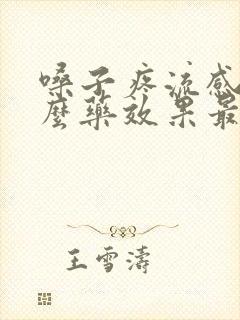 嗓子疼流感
麼藥效果最
王雪濤